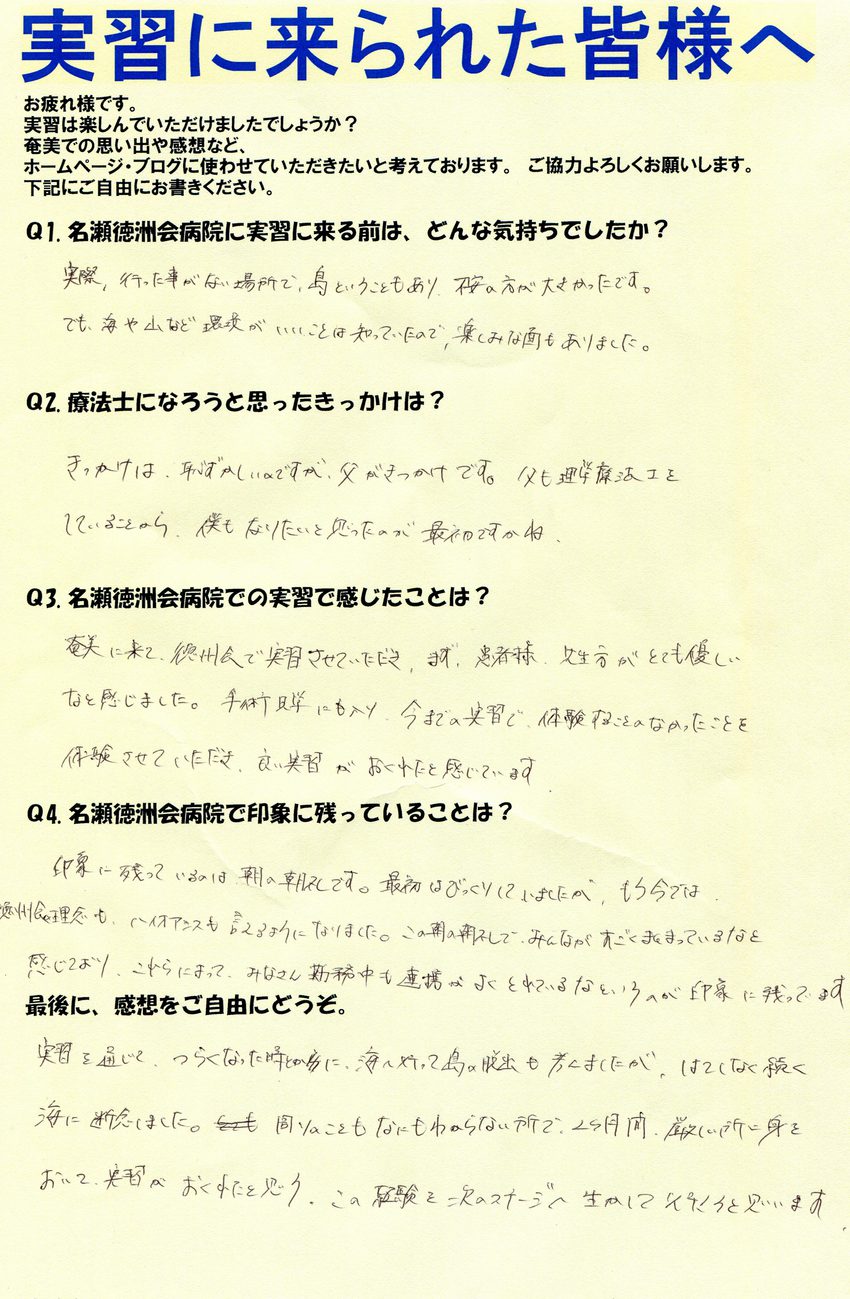 実習に来られた皆様へ
お疲れ様です。
実習は楽しんでいただけましたでしょうか？
奄美での思い出や感想など、
ホームページ・ブログに使わせていただきたいと考えております。 ご協力よろしくお願いします。
下記にご自由にお書きください。
Q1. 名瀬徳洲会病院に実習に来る前は、どんな気持ちでしたか？
実際、行った事がない場所で、島ということもあり、の方が大きかったです。
でも、海や山など環境がいいことは知っていたので、楽しみな面もありました。
Q2. 療法士になろうと思ったきっかけは？
きっかけは、恥ずかしいのですが、父がきっかけです。父も理学療法士を
していることから、僕もなりたいと思ったのが最初ですかね。
Q3. 名瀬徳洲会病院での実習で感じたことは？
奄美に来て、徳州会で実習させていただき、まず、患者様、先生方がとても優しい
なと感じました。手術見学にも入り、今までの実習で、体験することのなかったことを
体験させていただき、良い実習がおくれたと感じています。
Q4. 名瀬徳洲会病院で印象に残っていることは？
印象に残っているのは、朝の朝礼です。最初はびっくりしていましたが、もう今では、
徳州会理念も、ハイオアシスも言えるようになりました。この朝の朝礼で、みんながすごくまとまっているなと
感じており、これらによって、みなさん勤務中も連携がよくとれているなというのが印象に残っています
最後に、感想をご自由にどうぞ。
実習を通じて、つらくなった時とかに、海へ行って島の脱出も考えましたが、はてしなく続く
海に断念しました。周りのこともなにもわからない所で、2ヶ月間、厳しい所に身を
おいて、実習がおくれたと思う。この経験を次のステージへ生かして行こうと思います。